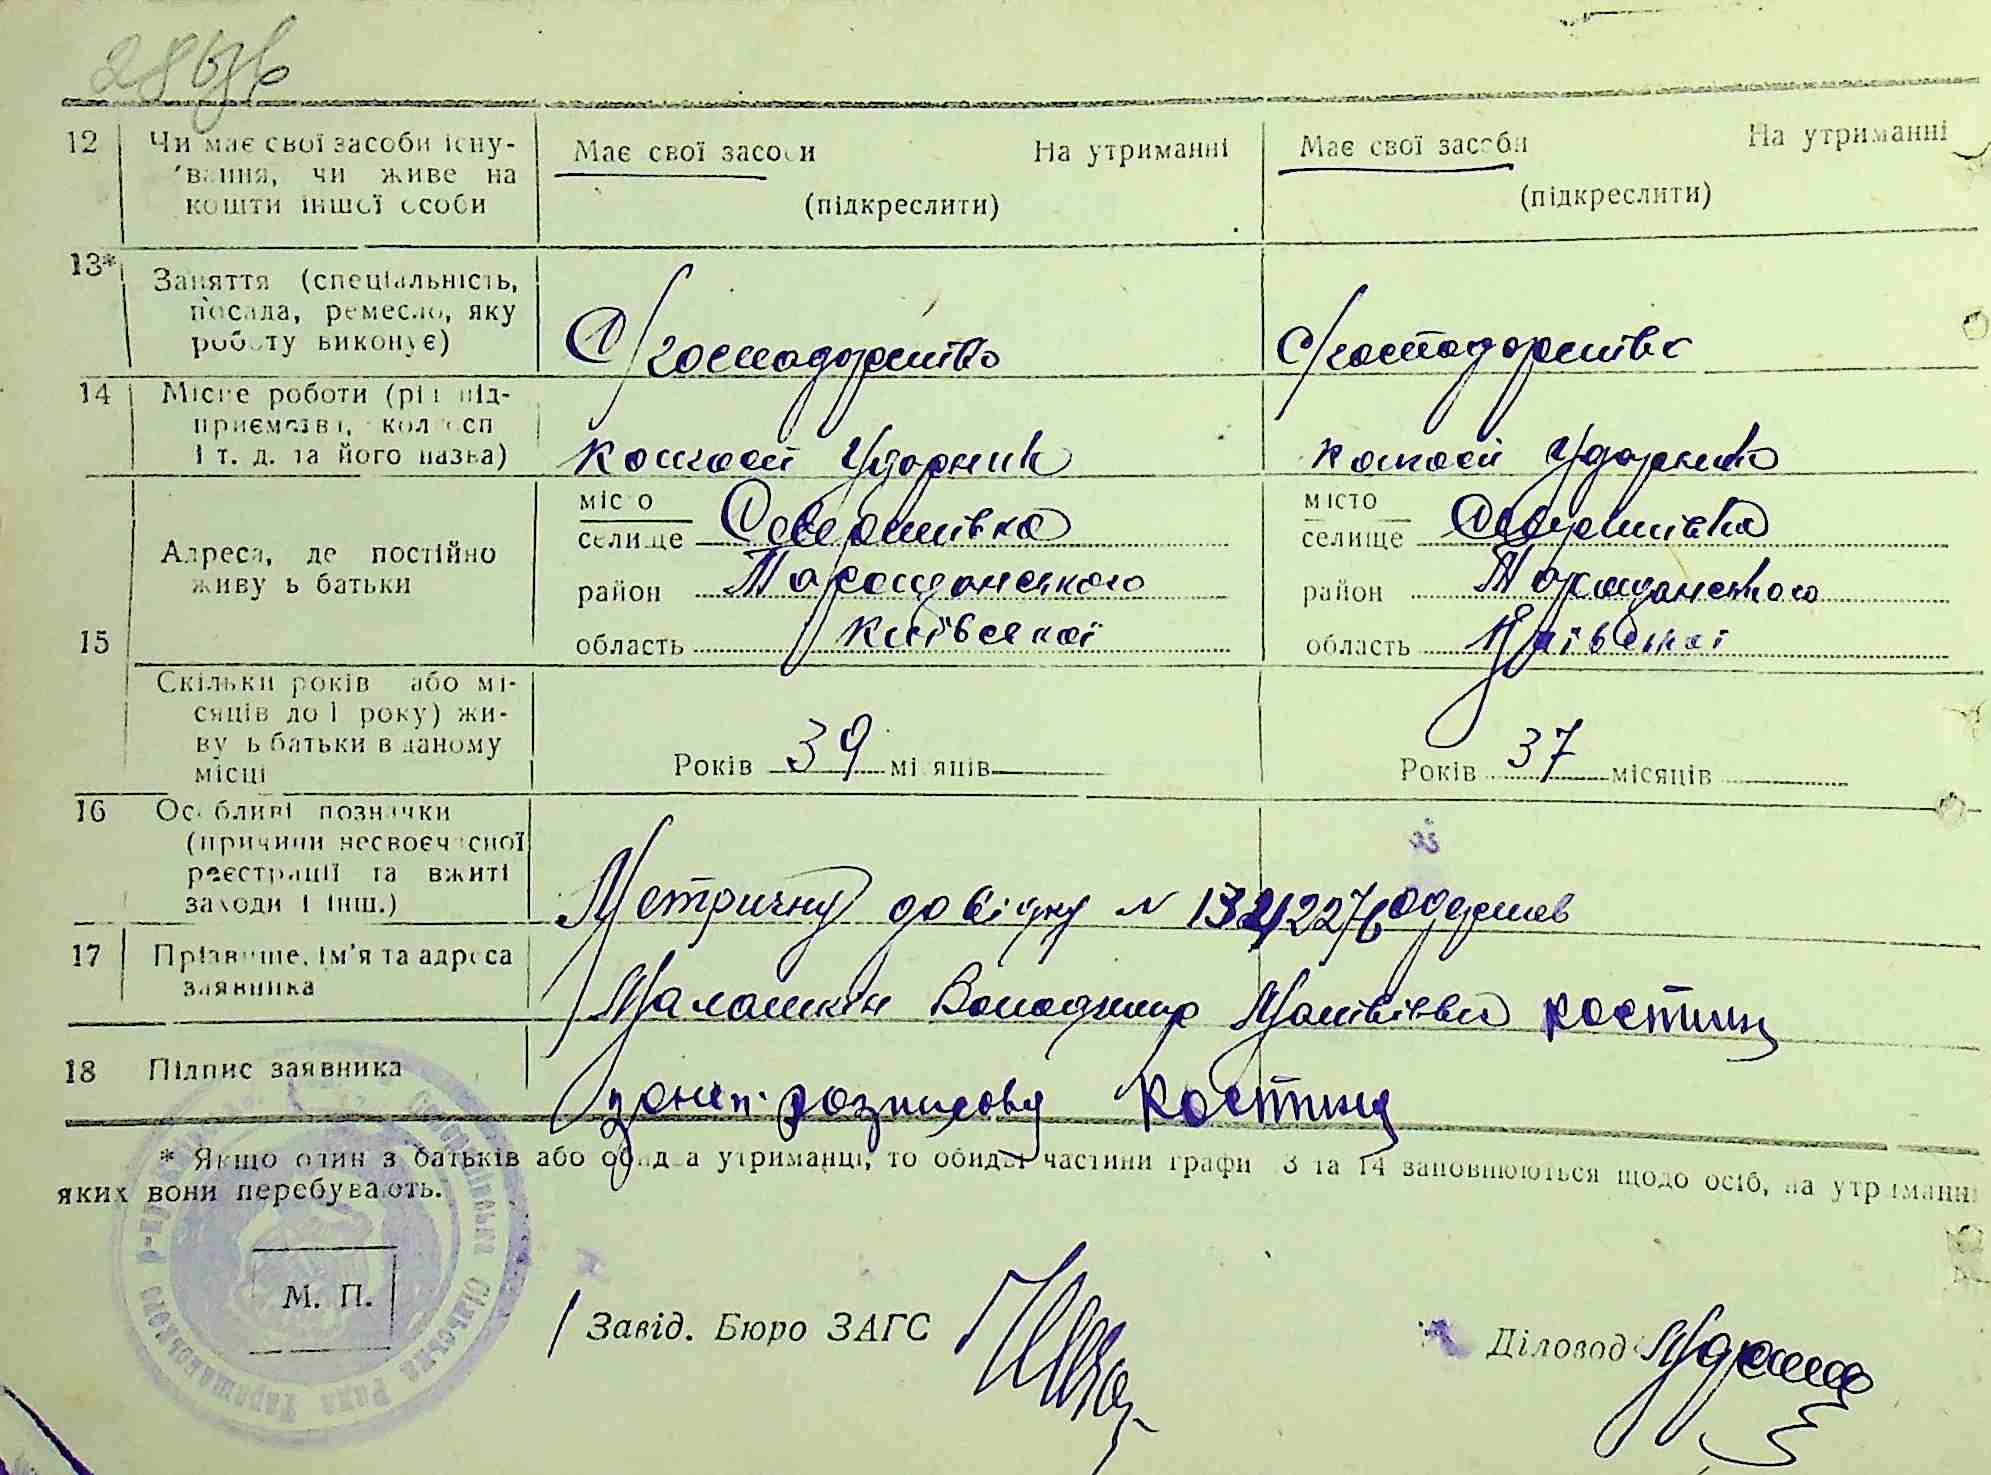 12 Чи має свої засоби існування, чи живе на кошти іншої особи
Має свої засоби На утриманні
(підкреслити)
Має свої засоби На утриманні
(підкреслити)
13* Заняття (спеціальність, посада, ремесло, яку роботу виконує)
С/господорство
С/господорство
14 Місце роботи (рід підприємства, колгосп і т. д. та його назва)
Колгосп Ударник
Колгосп Ударник
15 Адреса, де постійно живуть батьки
місто
селище Северинівка
район Таращанського
область Київської
місто
селище Северинівка
район Таращанського
область Київської
Скільки років або місяців до 1 року) живуть батьки в даному місці
Років 39 місяців
Років 37 місяців
16 Особливі позначки (причини несвоєчасної реєстрації та вжиті заходи і інш.)
Метричну довідку N одержав
17 Прізвище, ім'я та адреса заявника
Володимир
18 Підпис заявника
* Якщо один з батьків або обидва утриманці, то обидві частини графи 13 та 14 заповнюються щодо осіб, на утриманні
яких вони перебувають.
М. П.
Завід. Бюро ЗАГС
Діловод
Сільська Рада Таращанського р-ну